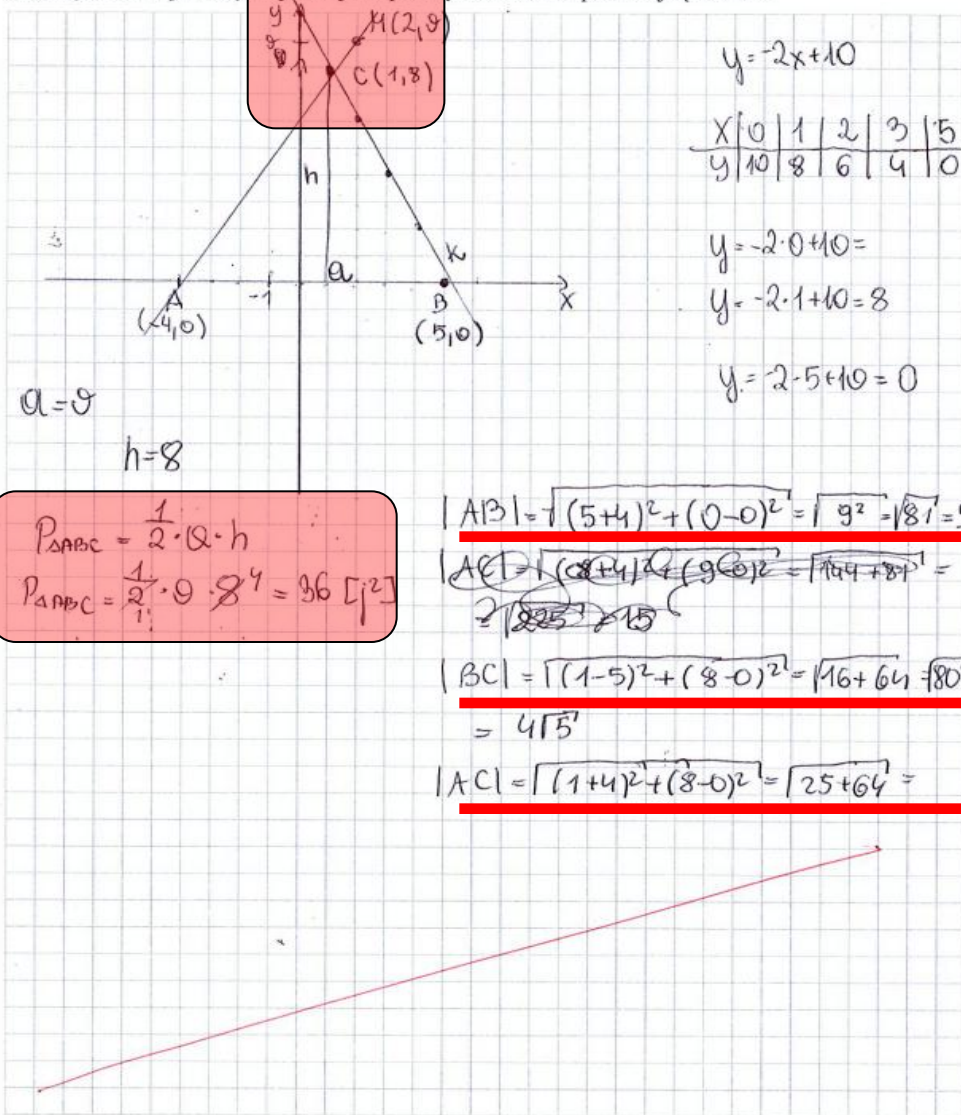 y
M(2,9)
C(1,8)
h
a
k
A
-1
B
x
(-4,0)
(5,0)
y=-2x+10
x|0|1|2|3|5
y|10|8|6|4|0
y=-2·0+10=
y=-2·1+10=8
y=-2·5+10=0
a=9
h=8
P△ABC = 1/2·a·h
P△ABC = 1/2·9·8 4 = 36 [j²]
1
|AB|=√(5+4)²+(0-0)²=√9²=√81=
|AC|=√(8+4)²+(9-0)²=√144+81=
=√225=15
|BC|=√(1-5)²+(8-0)²=√16+64=√80
= 4√5
|AC|=√(1+4)²+(8-0)²=√25+64=